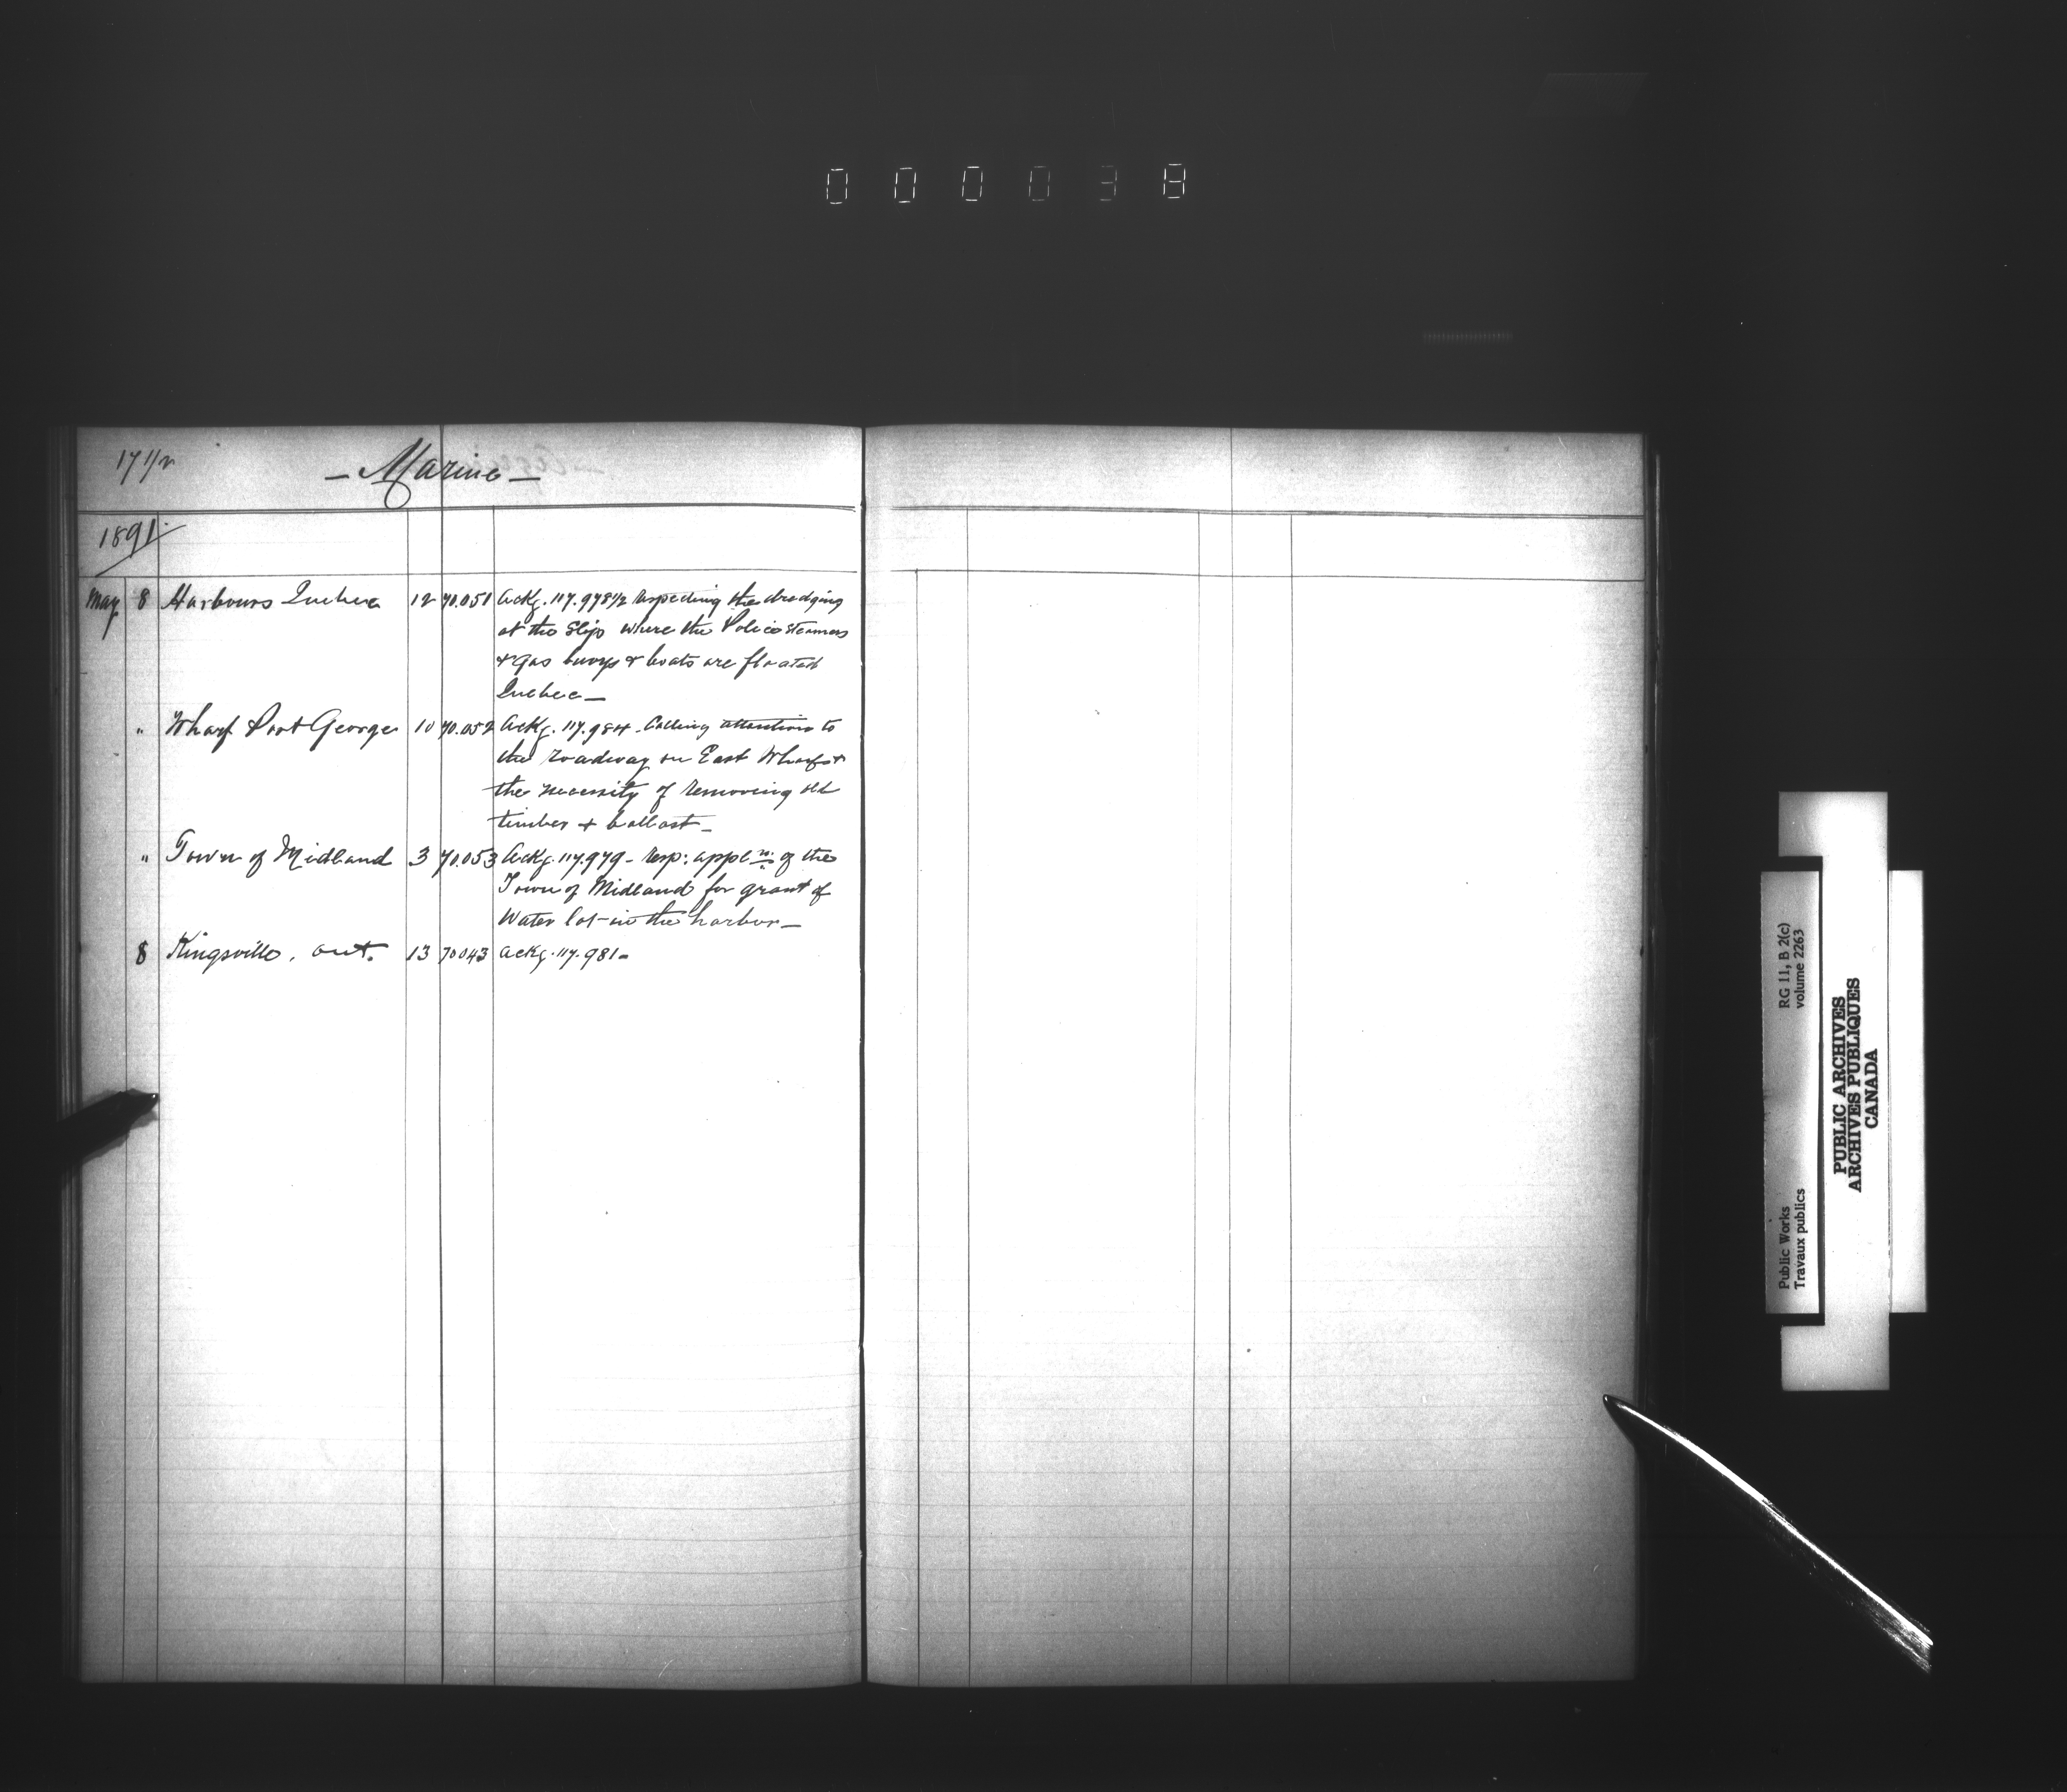 000038
17 1/2
— Marine —
1891.
May 8 Harbours Quebec 12 70.051 Ackg. 117.978 1/2 respecting the dredging
at the Slip where the Police steamers
& gas buoys & boats are floated
Quebec —
" Wharf Port George 10 70.052 Ackg. 117.984. Calling attention to
the roadway on East Wharf &
the necessity of removing old
timber & ballast —
" Town of Midland 3 70.053 Ackg. 117.979 — resp: appl n. of the
Town of Midland for grant of
Water lot in the harbor —
8 Kingsville, ont. 13 70043 Ackg. 117.981 —
Public Works RG 11, B 2(c)
Travaux publics volume 2263
PUBLIC ARCHIVES
ARCHIVES PUBLIQUES
CANADA